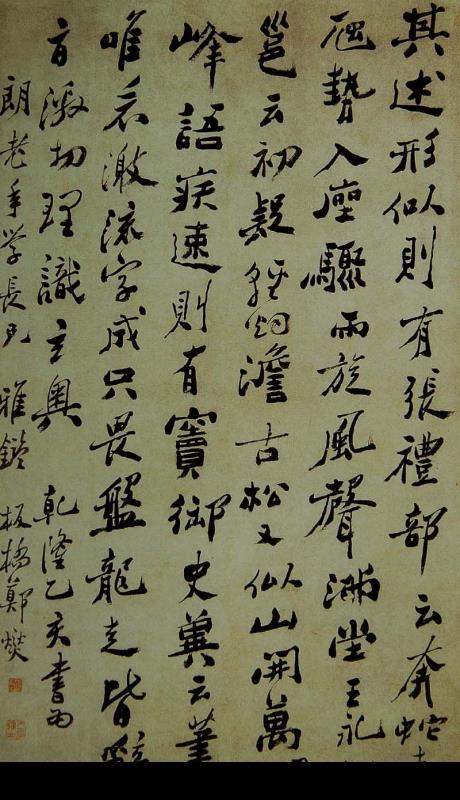 其述形似則有張禮部云奔蛇走
虺勢入座驟雨旋風聲滿堂王永
邕云初疑輕烟澹古松又似山開萬
峰語疾速則有竇御史冀云筆
唯看激流字成只畏盤龍走皆辭
旨激切理識玄奧 乾隆乙亥書為
朗老年學長兄 雅鑒 板橋鄭燮